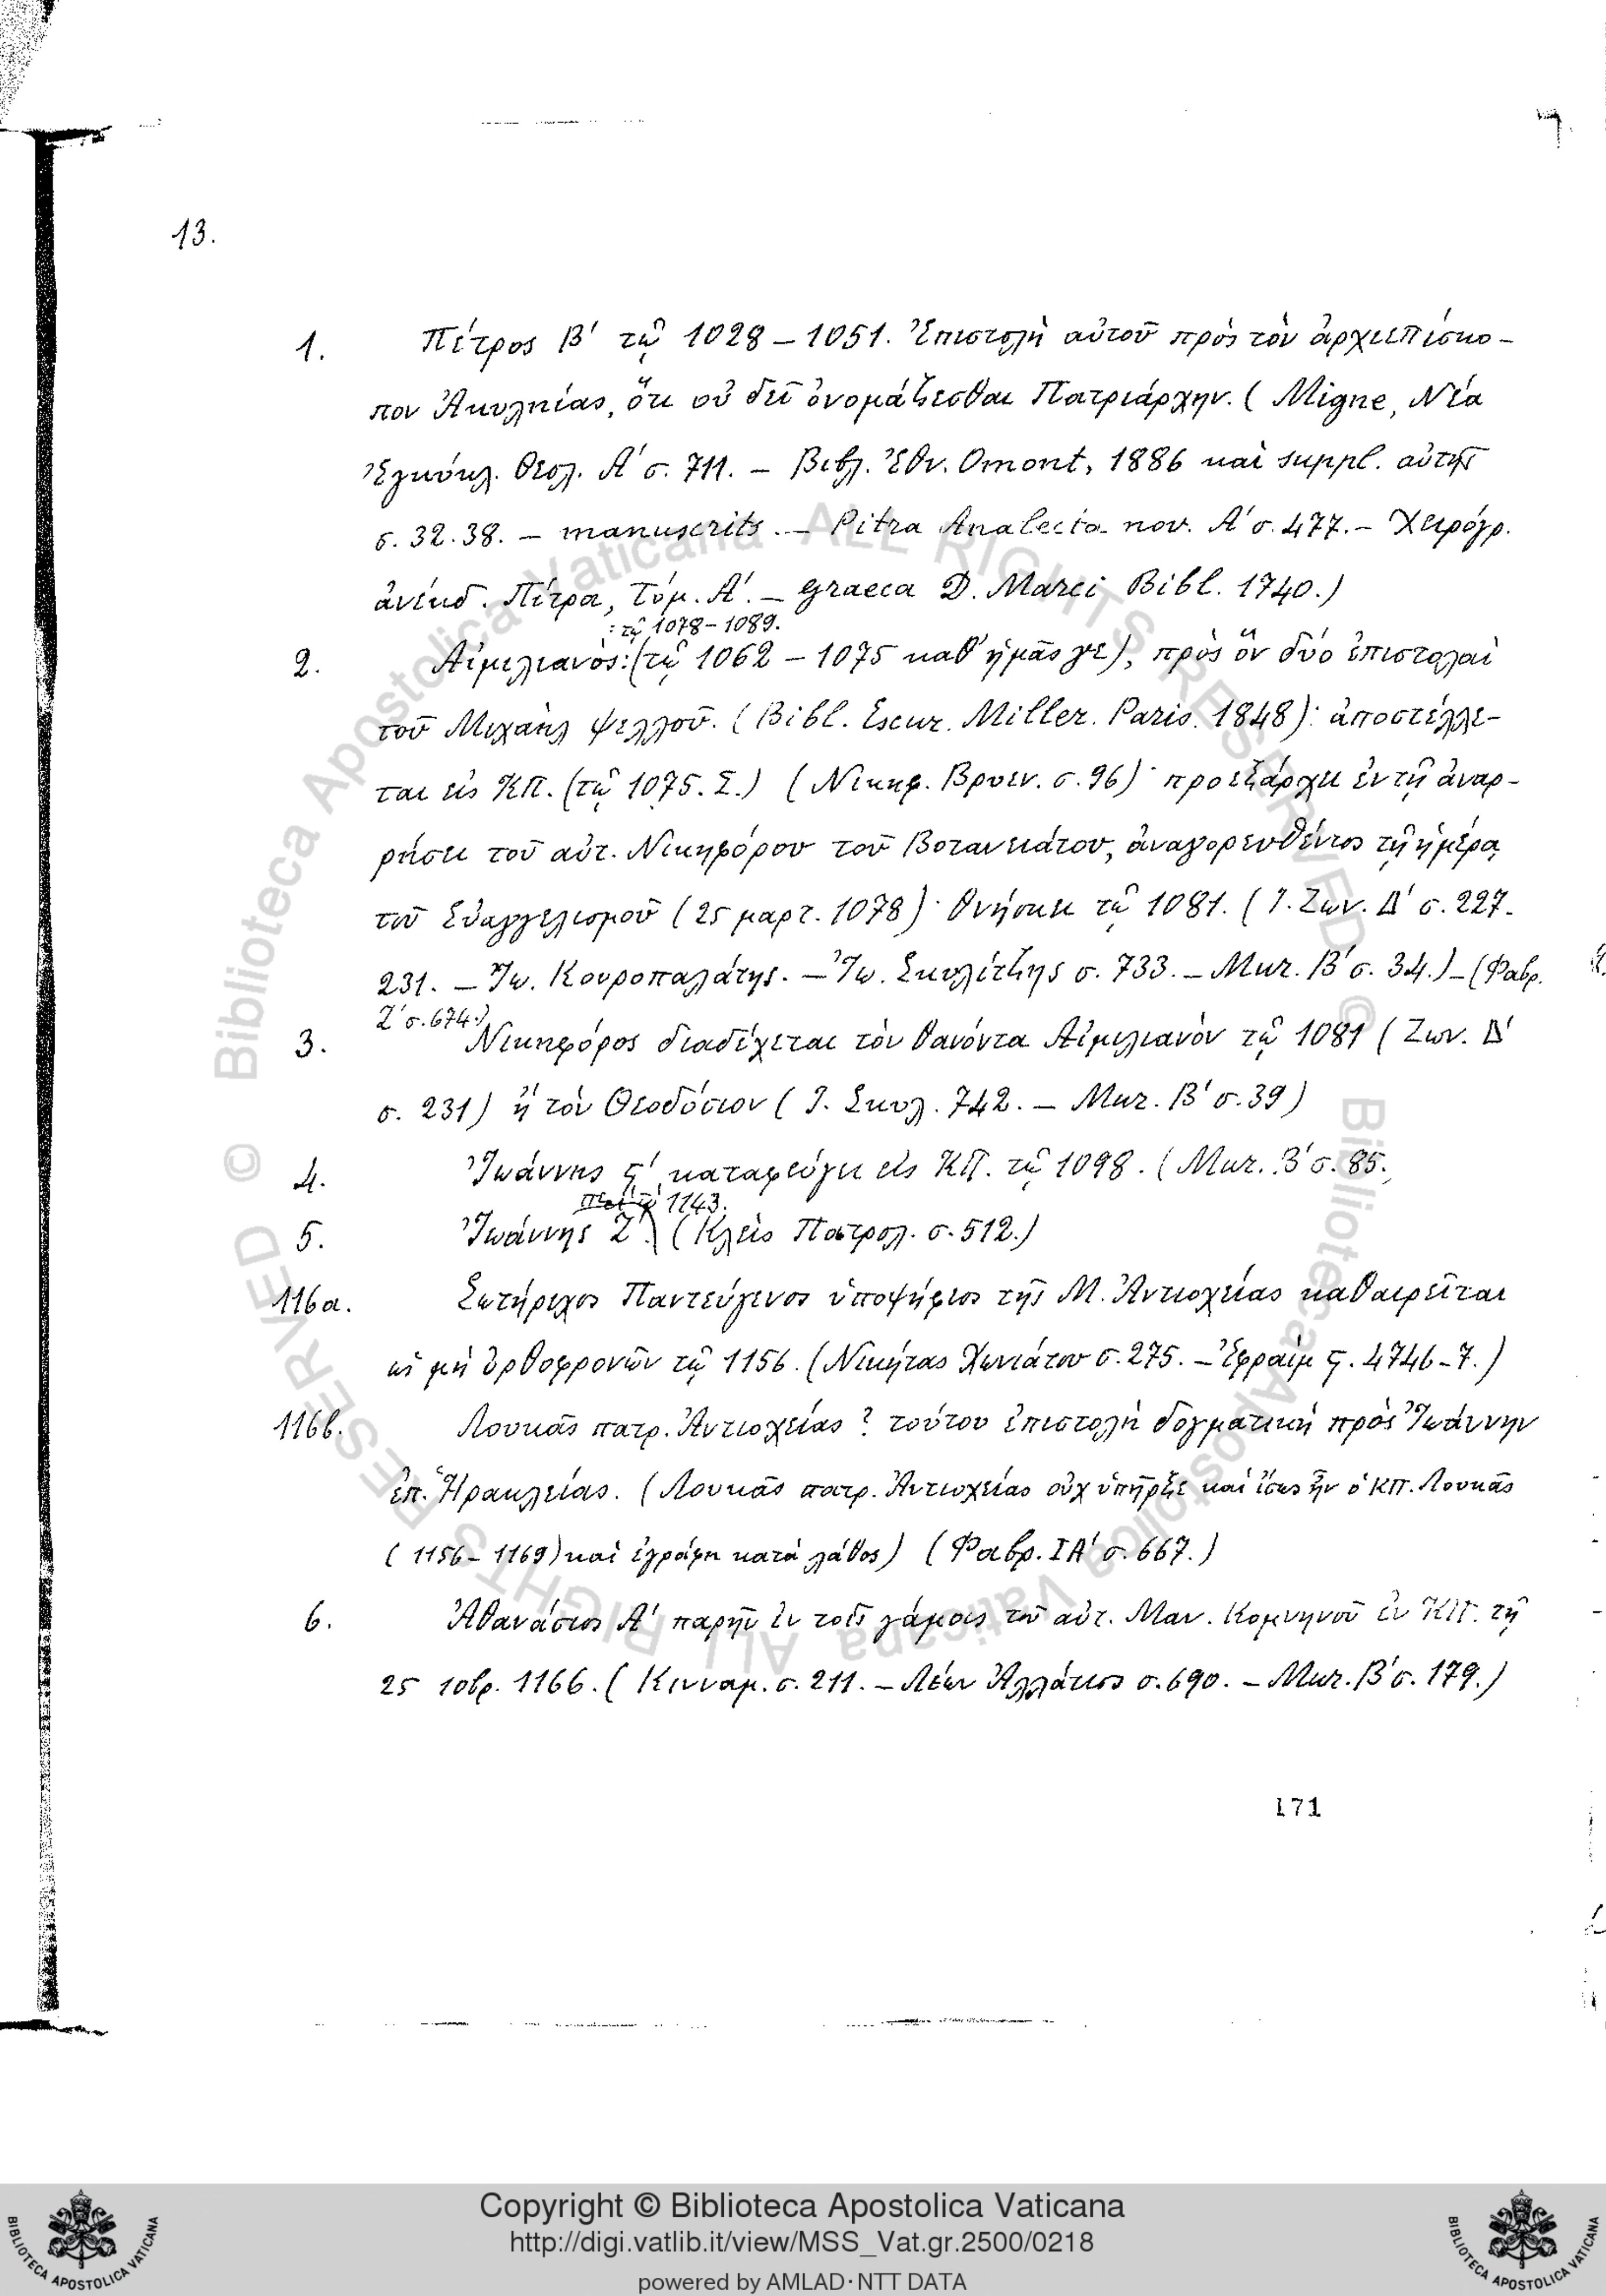 13.
1. Πέτρος Β΄ τῷ 1028 – 1051. Ἐπιστολὴ αὐτοῦ πρὸς τὸν ἀρχιεπίσκο-
πον Ἀκυληίας, ὅτι οὐ δεῖ ὀνομάζεσθαι Πατριάρχην. ( Migne, Νέα
Ἐγκύκλ. Θεολ. Α΄ σ. 711. – Βιβλ. Ἐθν. Omont, 1886 καὶ suppl. αὐτῆς
σ. 32.38. – manuscrits. – Pitra Analecta nov. Α΄ σ. 477. – Χειρόγρ.
ἀνέκδ. Πίτρα, Τόμ. Α΄. – graeca D. Marci Bibl. 1740.)
: τῷ 1078 – 1089.
2. Αἰμιλιανὸς: (τῷ 1062 – 1075 καθ᾿ ἡμᾶς γε), πρὸς ὃν δύο ἐπιστολαὶ
τοῦ Μιχαὴλ Ψελλοῦ. ( Bibl. Escur. Miller. Paris. 1848)· ἀποστέλλε-
ται εἰς ΚΠ. (τῷ 1075. Σ.) ( Νικηφ. Βρυεν. σ. 96)· προεξάρχει ἐν τῇ ἀναρ-
ρήσει τοῦ αὐτ. Νικηφόρου τοῦ Βοτανειάτου, ἀναγορευθέντος τῇ ἡμέρᾳ
τοῦ Εὐαγγελισμοῦ ( 25 μαρτ. 1078)· θνήσκει τῷ 1081. ( Ἰ. Ζων. Δ΄ σ. 227.
231. – Ἰω. Κουροπαλάτης. – Ἰω. Σκυλίτζης σ. 733. – Μur. Β΄ σ. 34.) – (Φαβρ.
Ζ΄ σ. 674.)
3. Νικηφόρος διαδέχεται τὸν θανόντα Αἰμιλιανὸν τῷ 1081 ( Ζων. Δ΄
σ. 231) ἢ τὸν Θεοδόσιον ( Ἰ. Σκυλ. 742. – Μur. Β΄ σ. 39)
4. Ἰωάννης ϛ΄ καταφεύγει εἰς ΚΠ. τῷ 1098. ( Μur. Β΄ σ. 85.
1143.
5. Ἰωάννης Ζ΄ ( Κλεὶς Πατρολ. σ. 512.)
116α. Σωτήριχος Παντεύγενος ὑποψήφιος τῆς Μ. Ἀντιοχείας καθαιρεῖται
ὡς μὴ ὀρθοφρονῶν τῷ 1156. (Νικήτας Χωνιάτου σ. 275. – Ἐφραὶμ ϛ. 4746-7.)
116β. Λουκᾶς πατρ. Ἀντιοχείας ? τούτου ἐπιστολὴ δογματικὴ πρὸς Ἰωάννην
ἐπ. Ἡρακλείας. ( Λουκᾶς πατρ. Ἀντιοχείας οὐχ ὑπῆρξε καὶ ἴσως ἦν ὁ ΚΠ. Λουκᾶς
( 1156 – 1169) καὶ ἐγράφη κατὰ λάθος) ( Φαβρ. ΙΑ΄ σ. 667.)
6. Ἀθανάσιος Α΄ παρῆν ἐν τοῖς γάμοις τοῦ αὐτ. Μαν. Κομνηνοῦ ἐν ΚΠ. τῇ
25 10βρ. 1166. ( Κινναμ. σ. 211. – Λέων Ἀλλάτιος σ. 690. – Μur. Β΄ σ. 179.)
171
© Biblioteca Apostolica Vaticana ALL RIGHTS RESERVED
Copyright © Biblioteca Apostolica Vaticana
http://digi.vatlib.it/view/MSS_Vat.gr.2500/0218
powered by AMLAD·NTT DATA
BIBLIOTECA APOSTOLICA VATICANA
BIBLIOTECA APOSTOLICA VATICANA